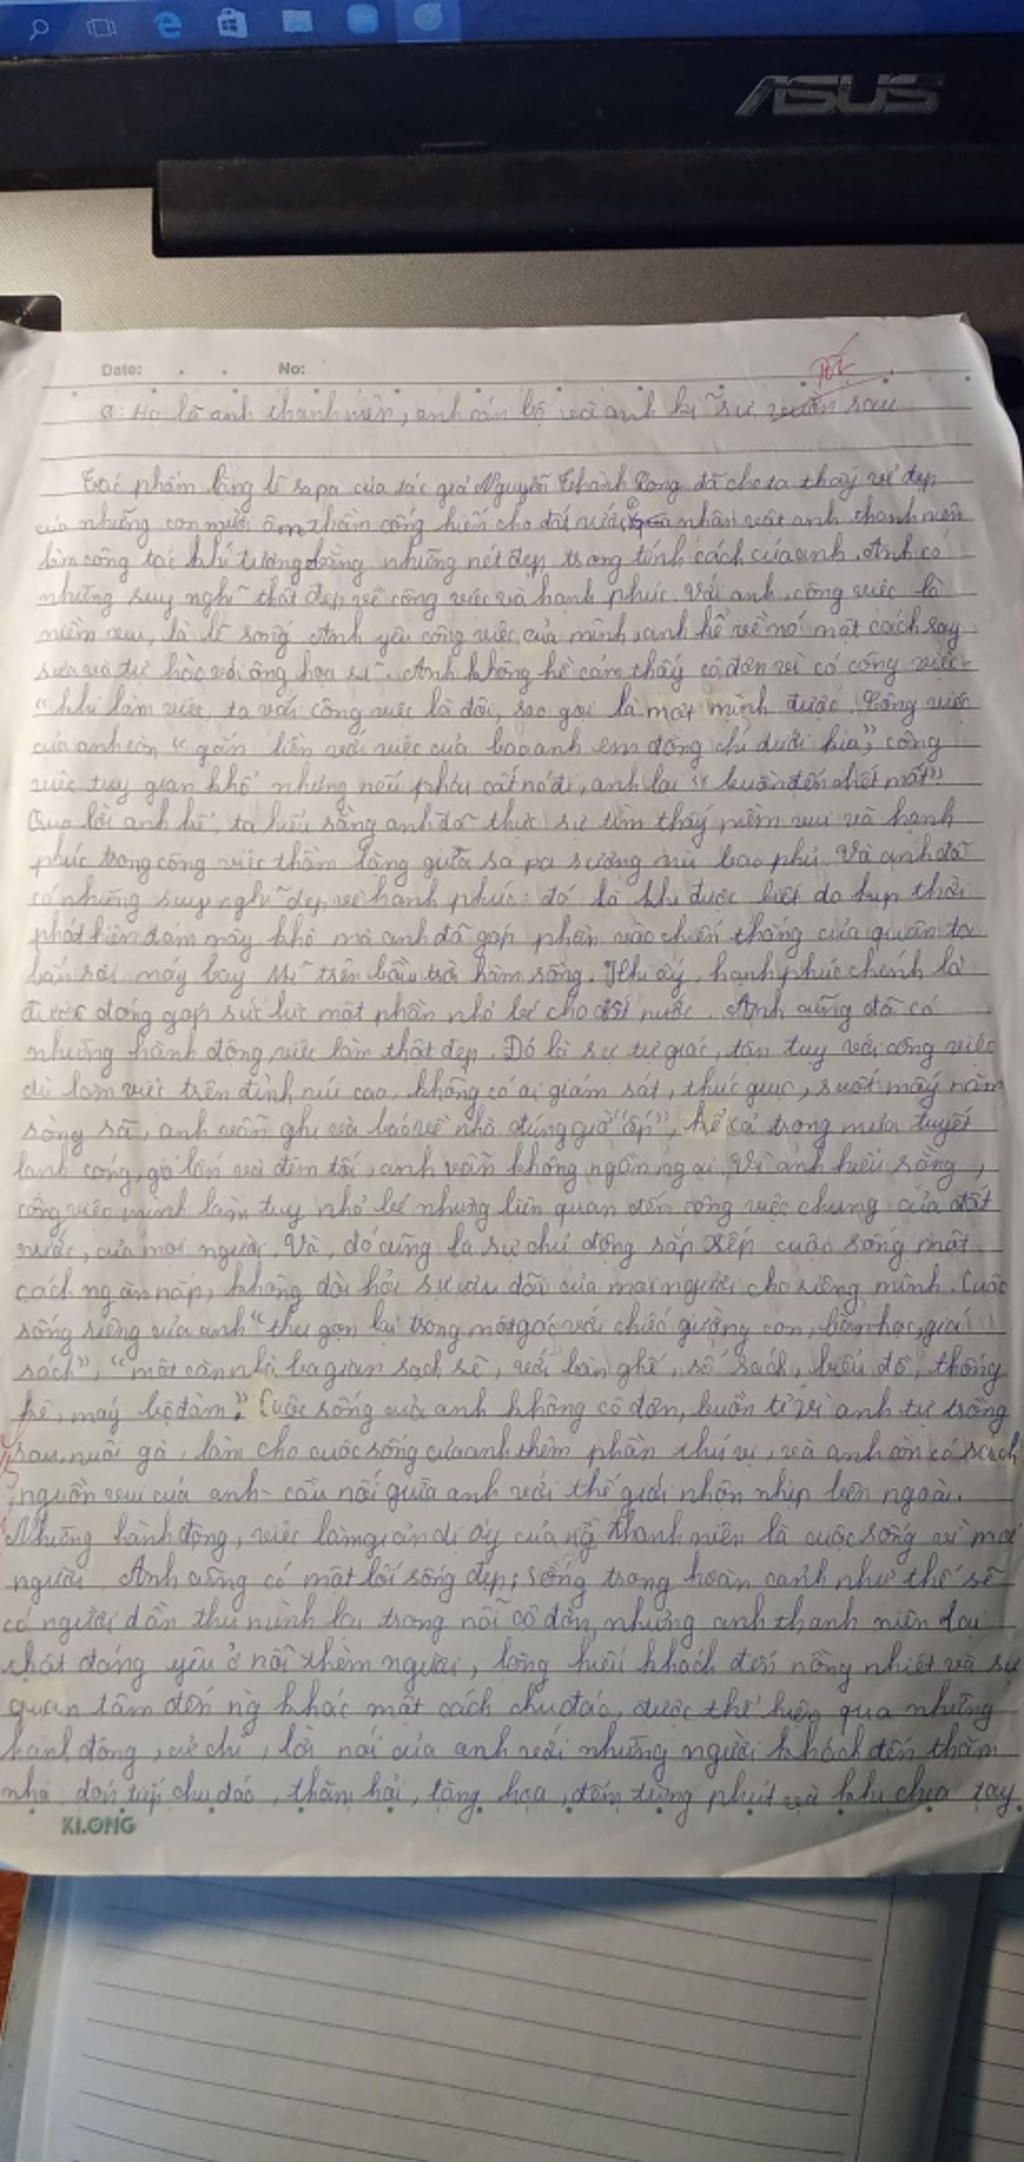 ASUS
Date: . . No:
Tốt
a: Họ là anh thanh niên, anh cán bộ và anh kĩ sư vườn rau
Tác phẩm lặng lẽ sapa của tác giả Nguyễn Thành Long đã cho ta thấy vẻ đẹp
của những con người âm thầm cống hiến cho đất nước, nhân vật anh thanh niên
làm công tác khí tượng bằng những nét đẹp trong tính cách của anh. Anh có
những suy nghĩ thật đẹp về công việc và hạnh phúc. Với anh, công việc là
niềm vui, là lẽ sống. Anh yêu công việc của mình, anh kể về nó một cách say
sưa và tự hào với ông họa sĩ. Anh không hề cảm thấy cô đơn vì có công việc
"khi làm việc, ta với công việc là đôi, sao gọi là một mình được. Công việc
của anh còn "gắn liền với việc của bao anh em đồng chí dưới kia", công
việc tuy gian khổ nhưng nếu phải cất nó đi, anh lại "buồn đến chết mất"
Qua lời anh kể, ta hiểu rằng anh đã thực sự tìm thấy niềm vui và hạnh
phúc trong công việc thầm lặng giữa sa pa sương mù bao phủ. Và anh đã
có những suy nghĩ đẹp về hạnh phúc: đó là khi được biết do kịp thời
phát hiện đám mây khô mà anh đã góp phần vào chiến thắng của quân ta
bắn rơi máy bay Mĩ trên bầu trời hàm rồng. Khi ấy, hạnh phúc chính là
được đóng góp sức lực một phần nhỏ bé cho đất nước. Anh cũng đã có
những hành động, việc làm thật đẹp. Đó là sự tự giác, tận tụy với công việc
dù làm việc trên đỉnh núi cao, không có ai giám sát, thúc giục, suốt mấy năm
ròng rã, anh vẫn ghi và báo về nhà đúng giờ "ốp", kể cả trong mưa tuyết
lạnh cóng, gió lớn và đêm tối, anh vẫn không ngần ngại. Vì anh hiểu rằng,
công việc mình làm tuy nhỏ bé nhưng liên quan đến công việc chung của đất
nước, của mọi người. Và, đó cũng là sự chủ động sắp xếp cuộc sống một
cách ngăn nắp, không đòi hỏi sự ưu đãi của mọi người cho riêng mình. Cuộc
sống riêng của anh "thu gọn lại trong một góc với chiếc giường con, bàn học, giá
sách", "một căn nhà ba gian sạch sẽ, với bàn ghế, sổ sách, biểu đồ, thống
kê, máy bộ đàm". Cuộc sống của anh không cô đơn, buồn tẻ vì anh tự trồng
rau, nuôi gà, làm cho cuộc sống của anh thêm phần thú vị, và anh còn có sách
nguồn vui của anh - cầu nối giữa anh với thế giới nhộn nhịp bên ngoài.
Những hành động, việc làm giản dị ấy của ng thanh niên là cuộc sống vì mọi
người. Anh cũng có một lối sống đẹp; sống trong hoàn cảnh như thế sẽ
có người dần thu mình lại trong nỗi cô đơn, nhưng anh thanh niên lại
thật đáng yêu ở nỗi thèm người, lòng hiếu khách đến nồng nhiệt và sự
quan tâm đến ng khác một cách chu đáo, được thể hiện qua những
hành động, cử chỉ, lời nói của anh với những người khách đến thăm
nhà: đón tiếp chu đáo, thăm hỏi, tặng hoa, đếm từng phút và khi chia tay
KLONG